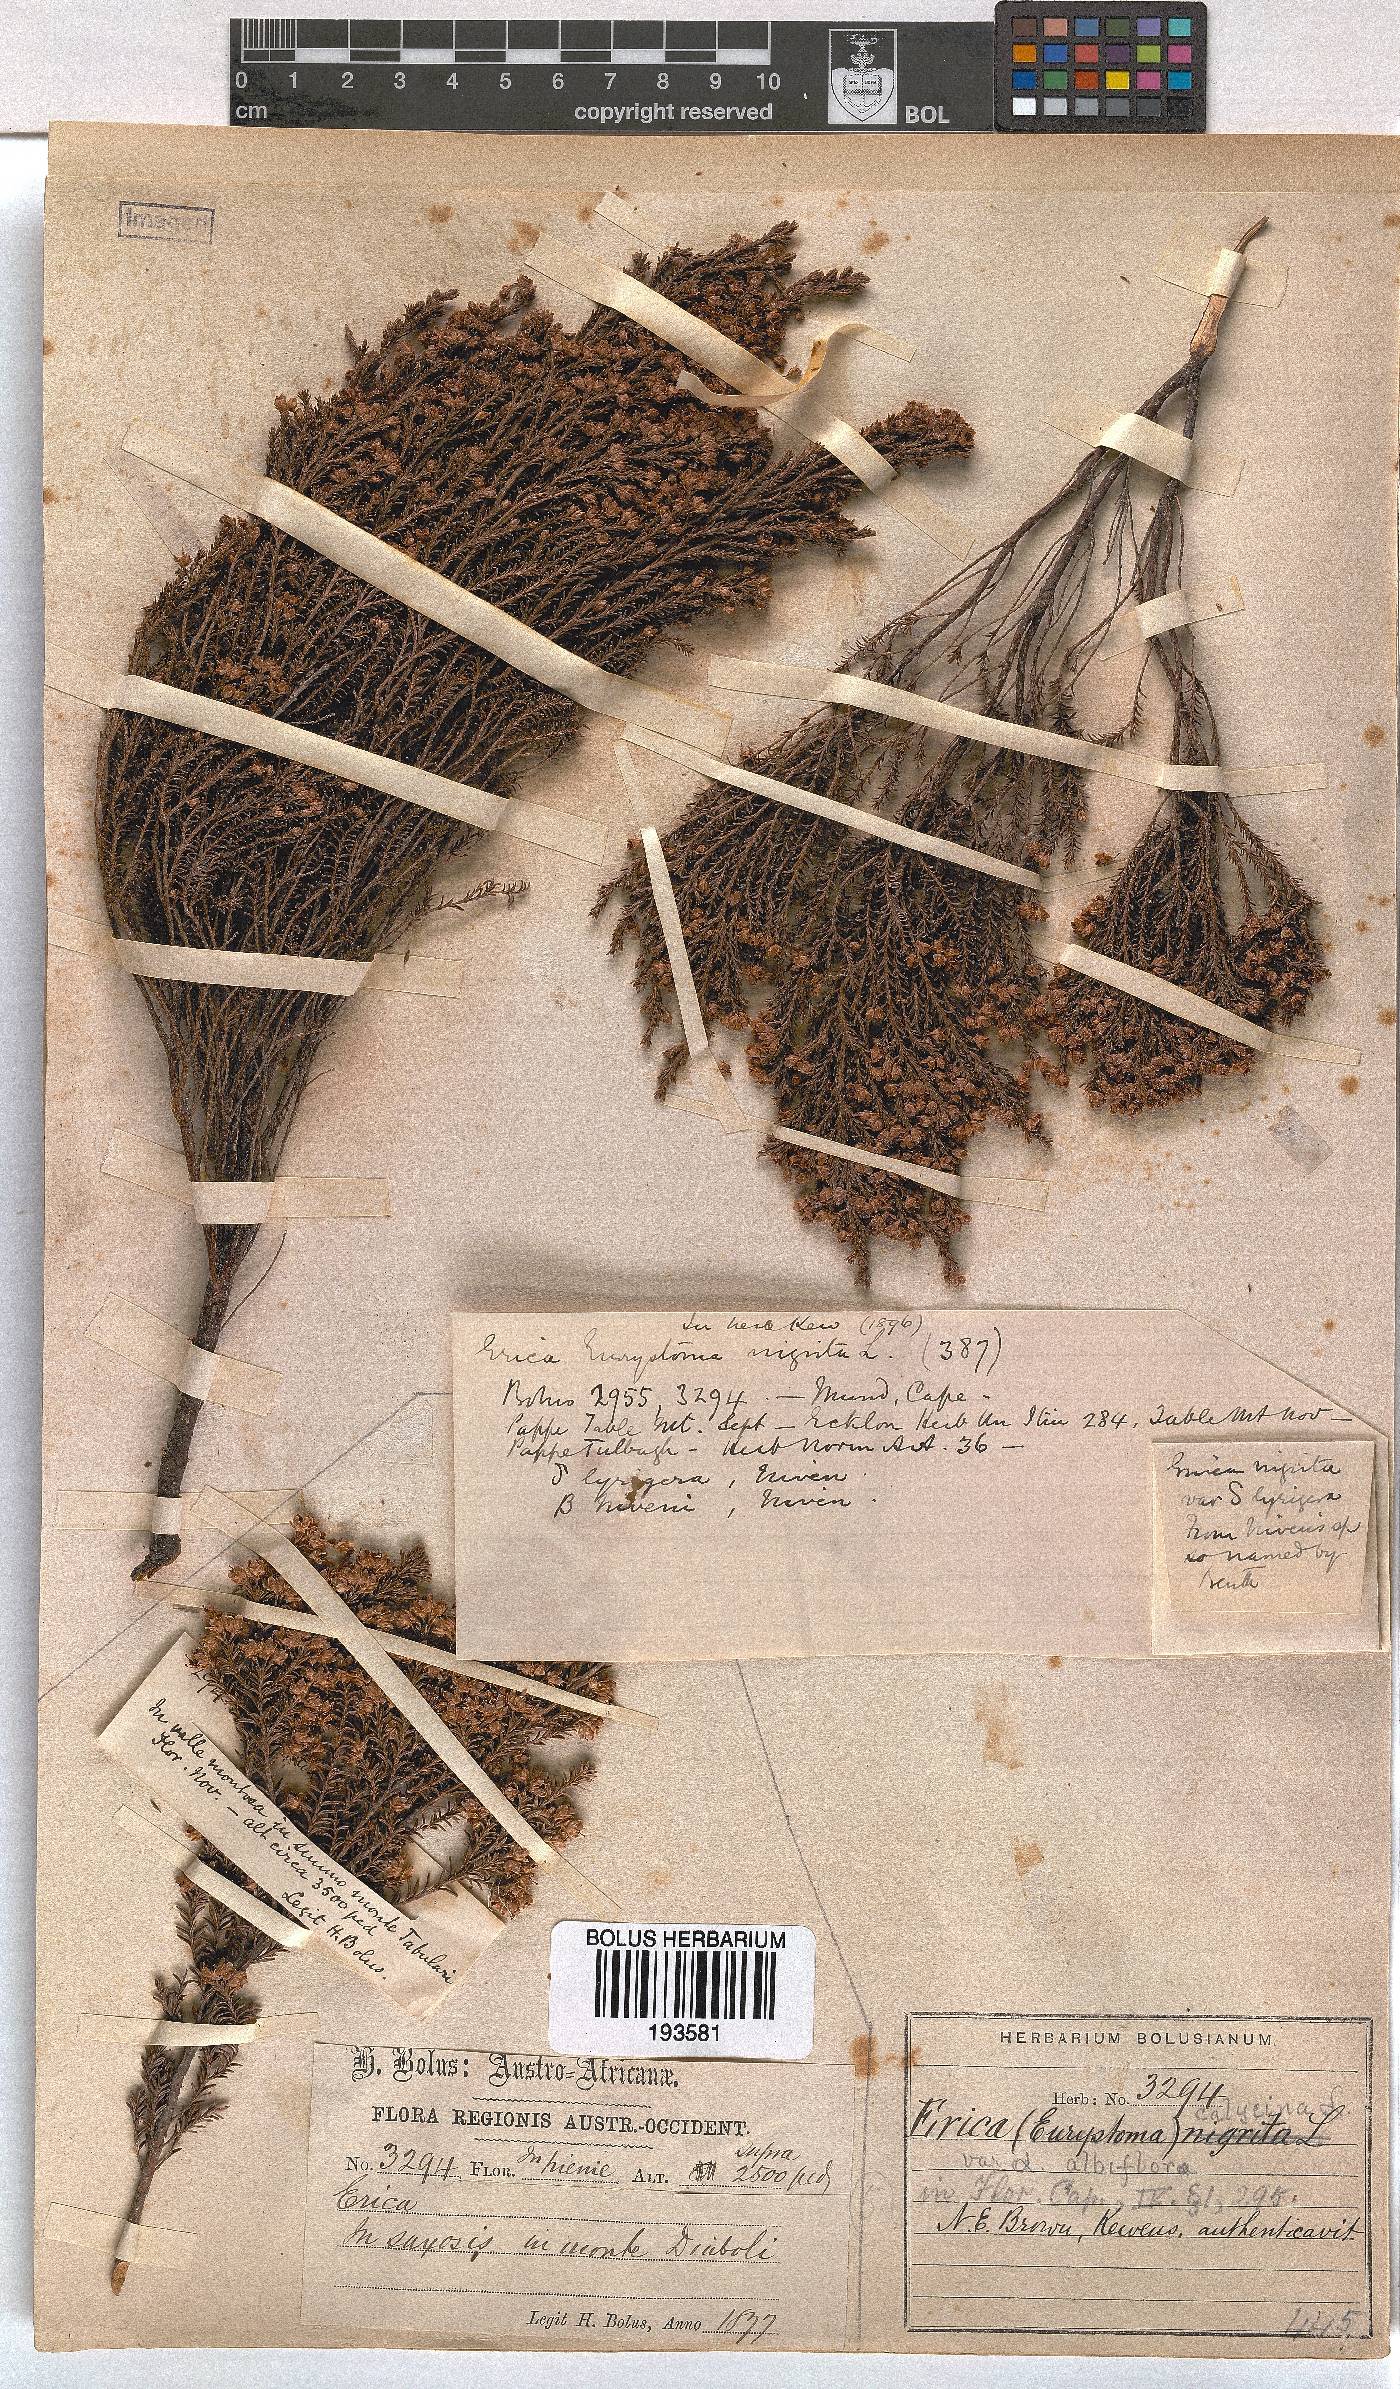 0 1 2 3 4 5 6 7 8 9 10
cm
copyright reserved
BOL
Imaged
In herb Kew (1896)
Erica Euryptoma nigrita L. (387)
Bolus 2955, 3294 — Mund, Cape -
Pappe Table Mt. Sept — Ecklon Herb Un Itin 284, Table Mt Nov —
Pappe Tulbagh - Herb Norm Aust. 36 —
δ lyrigera, Niven
B Niveni, Niven.
Erica nigrita
var δ lyrigera
from Niven's sp
so named by
Benth
In valle montosa in summo monte Tabulari
Flor. Nov. — alt circa 3500 ped
Legit H. Bolus.
BOLUS HERBARIUM
193581
H. Bolus: Austro-Africanæ.
FLORA REGIONIS AUSTR.-OCCIDENT.
supra
No. 3294 Flor. In hieme Alt. 2500 ped
Erica
In saxosis in monte Diaboli
Legit H. Bolus, Anno 1877
HERBARIUM BOLUSIANUM
Herb: No. 3294
calycina L.
Erica (Euryptoma) nigrita L
var α. albiflora
in Flor. Cap., IV. §1, 295.
N. E. Brown, Kewens. authenticavit